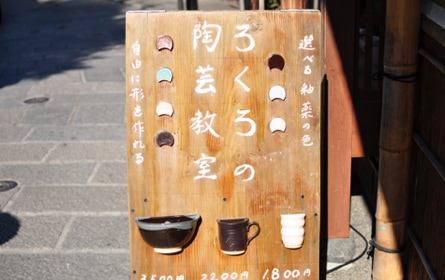 選べる釉薬の色
ろくろの
陶芸教室
自由に形を作れる
3500円
2200円
1800円